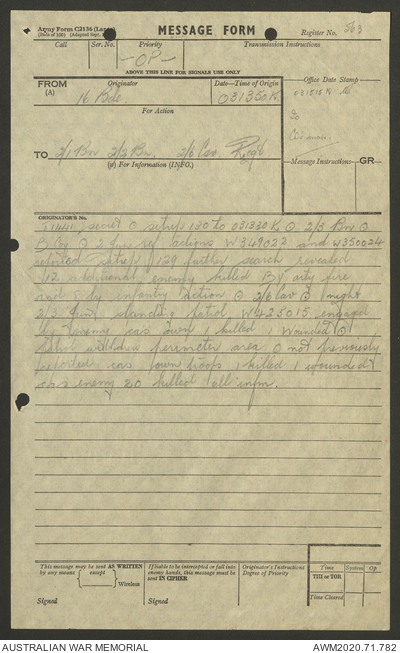 Army Form C2136 (Large)
MESSAGE FORM
Register No. 563
Call
Ser. No.
Priority
Transmission Instructions
-OP-
ABOVE THIS LINE FOR SIGNALS USE ONLY
FROM
(A)
Originator
Date—Time of Origin
Office Date Stamp
16 Bde
031350K
031515K
For Action
TO
2/1 Bn 2/2 Bn 2/6 Cav Regt
(W) For Information (INFO.)
Message Instructions
GR
ORIGINATOR'S No.
secret ⊙ sitrep 130 to 031330K ⊙ 2/3 Bn ⊙
B Coy ⊙ ref actions W349022 and W350024
reported sitrep 129 further search revealed
12 additional enemy killed By arty fire
and by infantry action ⊙ 2/6 Cav ⊙ night
2/3 Jun standing patrol W425015 engaged
by enemy cas own 1 killed 1 wounded ⊙
patrol withdrew perimeter area ⊙ not previously
reported cas own troops 1 killed 1 wounded
cas enemy 20 killed ⊙ all infm.
This message may be sent AS WRITTEN
by any means
except
Wireless
Signed
If liable to be intercepted or fall into
enemy hands, this message must be
sent IN CIPHER
Signed
Originator's Instructions
Degree of Priority
Time
System
Op
THI or TOR
Time Cleared
AUSTRALIAN WAR MEMORIAL
AWM2020.71.782